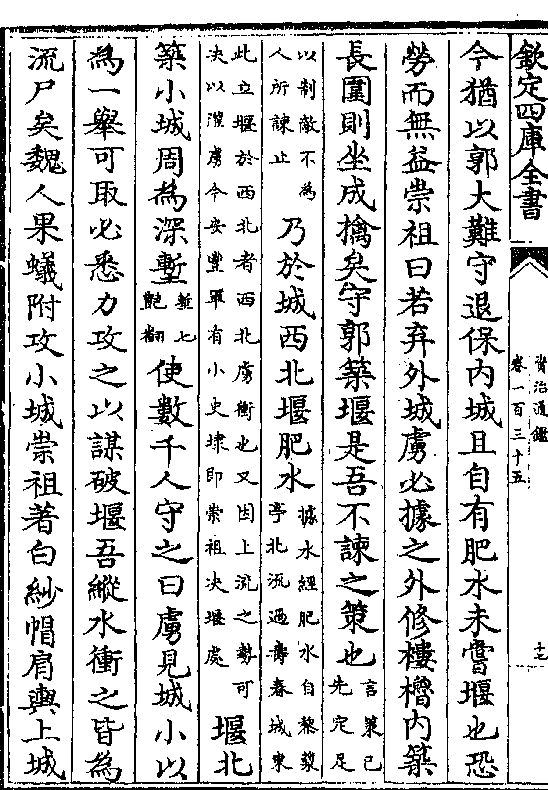 欽定四庫全書
資治通鑑
卷一百三十五
十七
今猶以郭大難守退保内城且自有肥水未嘗堰也恐
勞而無益崇祖曰若弃外城虜必據之外修樓櫓内築
長圍則坐成擒矣守郭築堰是吾不諫之策也言策已
先定足
以制敵不為
人所諫止乃於城西北堰肥水據水經肥水自黎漿
亭北流過壽春城東
此立堰於西北者西北虜衝也又因上流之勢可
决以灌虜今安豐軍有小史埭即崇祖决堰處堰北
築小城周為深塹塹七
艶翻使數千人守之曰虜見城小以
為一舉可取必悉力攻之以謀破堰吾縱水衝之皆為
流尸矣魏人果蟻附攻小城崇祖著白紗帽肩輿上城